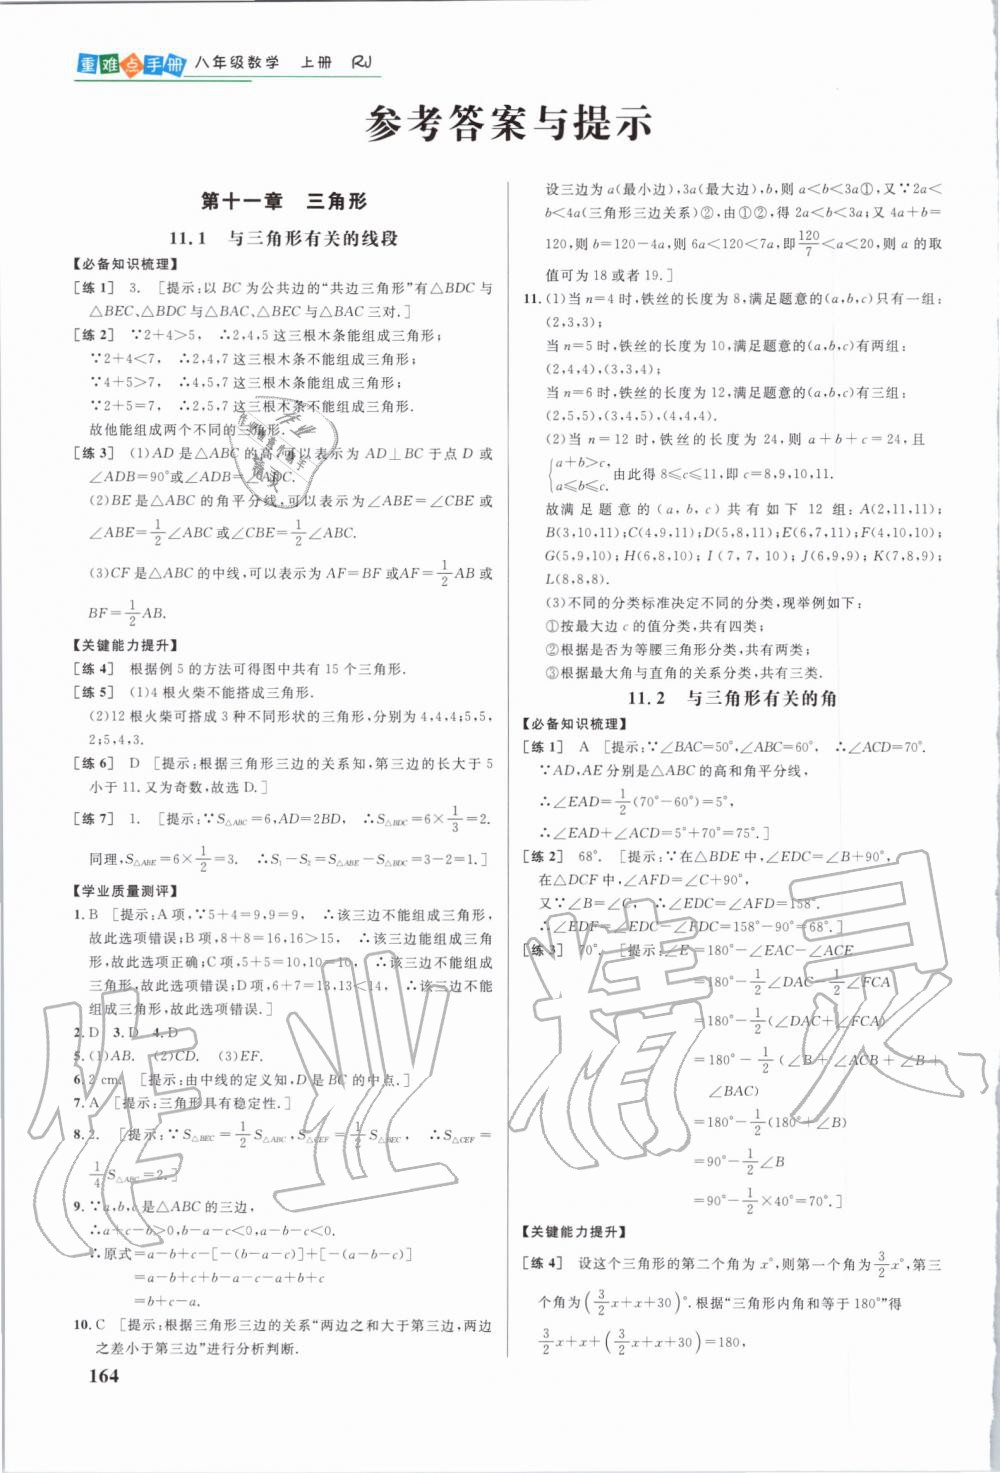 重难点手册 八年级数学 上册 RJ
参考答案与提示
第十一章 三角形
11.1 与三角形有关的线段
【必备知识梳理】
[练1] 3. [提示:以BC为公共边的“共边三角形”有△BDC与
△BEC、△BDC与△BAC、△BEC与△BAC三对.]
[练2] ∵2+4>5, ∴2,4,5这三根木条能组成三角形;
∵2+4<7, ∴2,4,7这三根木条不能组成三角形;
∵4+5>7, ∴4,5,7这三根木条能组成三角形;
∵2+5=7, ∴2,5,7这三根木条不能组成三角形.
故他能组成两个不同的三角形.
[练3] (1)AD是△ABC的高,可以表示为AD⊥BC于点D或
∠ADB=90°或∠ADB=∠ADC=90°.
(2)BE是△ABC的角平分线,可以表示为∠ABE=∠CBE或
∠ABE=1/2∠ABC或∠CBE=1/2∠ABC.
(3)CF是△ABC的中线,可以表示为AF=BF或AF=1/2AB或
BF=1/2AB.
【关键能力提升】
[练4] 根据例5的方法可得图中共有15个三角形.
[练5] (1)4根火柴不能搭成三角形.
(2)12根火柴可搭成3种不同形状的三角形,分别为4,4,4;5,5,
2;5,4,3.
[练6] D [提示:根据三角形三边的关系知,第三边的长大于5
小于11.又为奇数,故选D.]
[练7] 1. [提示:∵S△ABC=6,AD=2BD, ∴S△BDC=6×1/3=2.
同理,S△ABE=6×1/2=3. ∴S1-S2=S△ABE-S△BDC=3-2=1.]
【学业质量测评】
1. B [提示:A项,∵5+4=9,9=9, ∴该三边不能组成三角形,
故此选项错误;B项,8+8=16,16>15, ∴该三边能组成三角
形,故此选项正确;C项,5+5=10,10=10, ∴该三边不能组成
三角形,故此选项错误;D项,6+7=13,13<14, ∴该三边不能
组成三角形,故此选项错误.]
2. D 3. D 4. D
5. (1)AB. (2)CD. (3)EF.
6. 2 cm. [提示:由中线的定义知,D是BC的中点.]
7. A [提示:三角形具有稳定性.]
8. 2. [提示:∵S△BEC=1/2S△ABC,S△CEF=1/2S△BEC, ∴S△CEF=
1/4S△ABC=2.]
9. ∵a,b,c是△ABC的三边,
∴a+c-b>0,b-a-c<0,a-b-c<0.
∴原式=a-b+c-[-(b-a-c)]+[-(a-b-c)]
=a-b+c+b-a-c-a+b+c
=b+c-a.
10. C [提示:根据三角形三边的关系“两边之和大于第三边,两边
之差小于第三边”进行分析判断.
164
设三边为a(最小边),3a(最大边),b,则a<b<3a①,又∵2a<
b<4a(三角形三边关系)②,由①②,得2a<b<3a;又4a+b=
120,则b=120-4a,则6a<120<7a,即120/7<a<20,则a的取
值可为18或者19.]
11. (1)当n=4时,铁丝的长度为8,满足题意的(a,b,c)只有一组:
(2,3,3);
当n=5时,铁丝的长度为10,满足题意的(a,b,c)有两组:
(2,4,4),(3,3,4);
当n=6时,铁丝的长度为12,满足题意的(a,b,c)有三组:
(2,5,5),(3,4,5),(4,4,4).
(2)当n=12时,铁丝的长度为24,则a+b+c=24,且
{a+b>c,
a≤b≤c. 由此得8≤c≤11,即c=8,9,10,11.
故满足题意的(a,b,c)共有如下12组:A(2,11,11);
B(3,10,11);C(4,9,11);D(5,8,11);E(6,7,11);F(4,10,10);
G(5,9,10);H(6,8,10);I(7,7,10);J(6,9,9);K(7,8,9);
L(8,8,8).
(3)不同的分类标准决定不同的分类,现举例如下:
①按最大边c的值分类,共有四类;
②根据是否为等腰三角形分类,共有两类;
③根据最大角与直角的关系分类,共有三类.
11.2 与三角形有关的角
【必备知识梳理】
[练1] A [提示:∵∠BAC=50°,∠ABC=60°, ∴∠ACD=70°.
∵AD,AE分别是△ABC的高和角平分线,
∴∠EAD=1/2(70°-60°)=5°,
∴∠EAD+∠ACD=5°+70°=75°.]
[练2] 68°. [提示:∵在△BDE中,∠EDC=∠B+90°,
在△DCF中,∠AFD=∠C+90°,
又∵∠B=∠C, ∴∠EDC=∠AFD=158°.
∴∠EDF=∠EDC-∠FDC=158°-90°=68°.]
[练3] 70°. [提示:∠E=180°-∠EAC-∠ACE
=180°-1/2∠DAC-1/2∠FCA
=180°-1/2(∠DAC+∠FCA)
=180°-1/2(∠B+∠ACB+∠B+
∠BAC)
=180°-1/2(180°+∠B)
=90°-1/2∠B
=90°-1/2×40°=70°.]
【关键能力提升】
[练4] 设这个三角形的第二个角为x°,则第一个角为3/2x°,第三
个角为(3/2x+x+30)°.根据“三角形内角和等于180°”得
3/2x+x+(3/2x+x+30)=180,
作业精灵